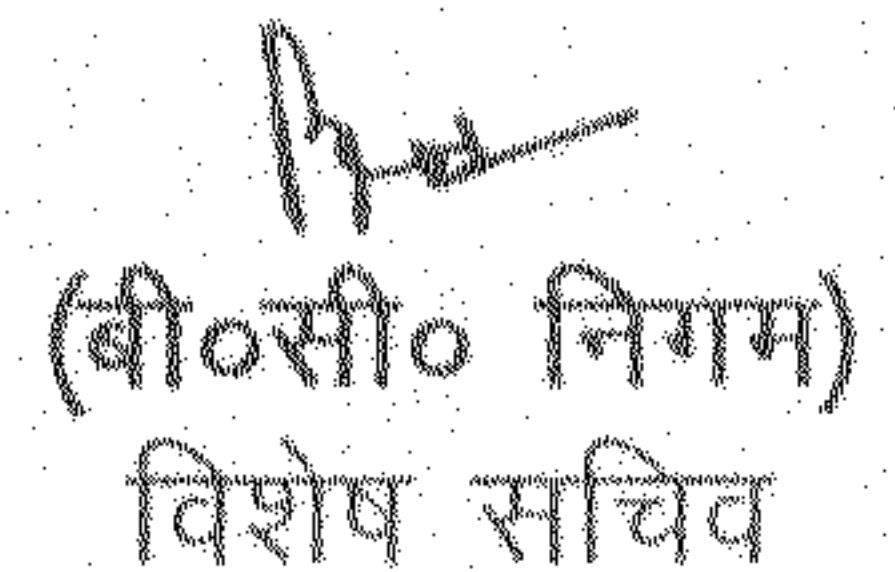 (वी०सी० निगम)
विशेष सचिव